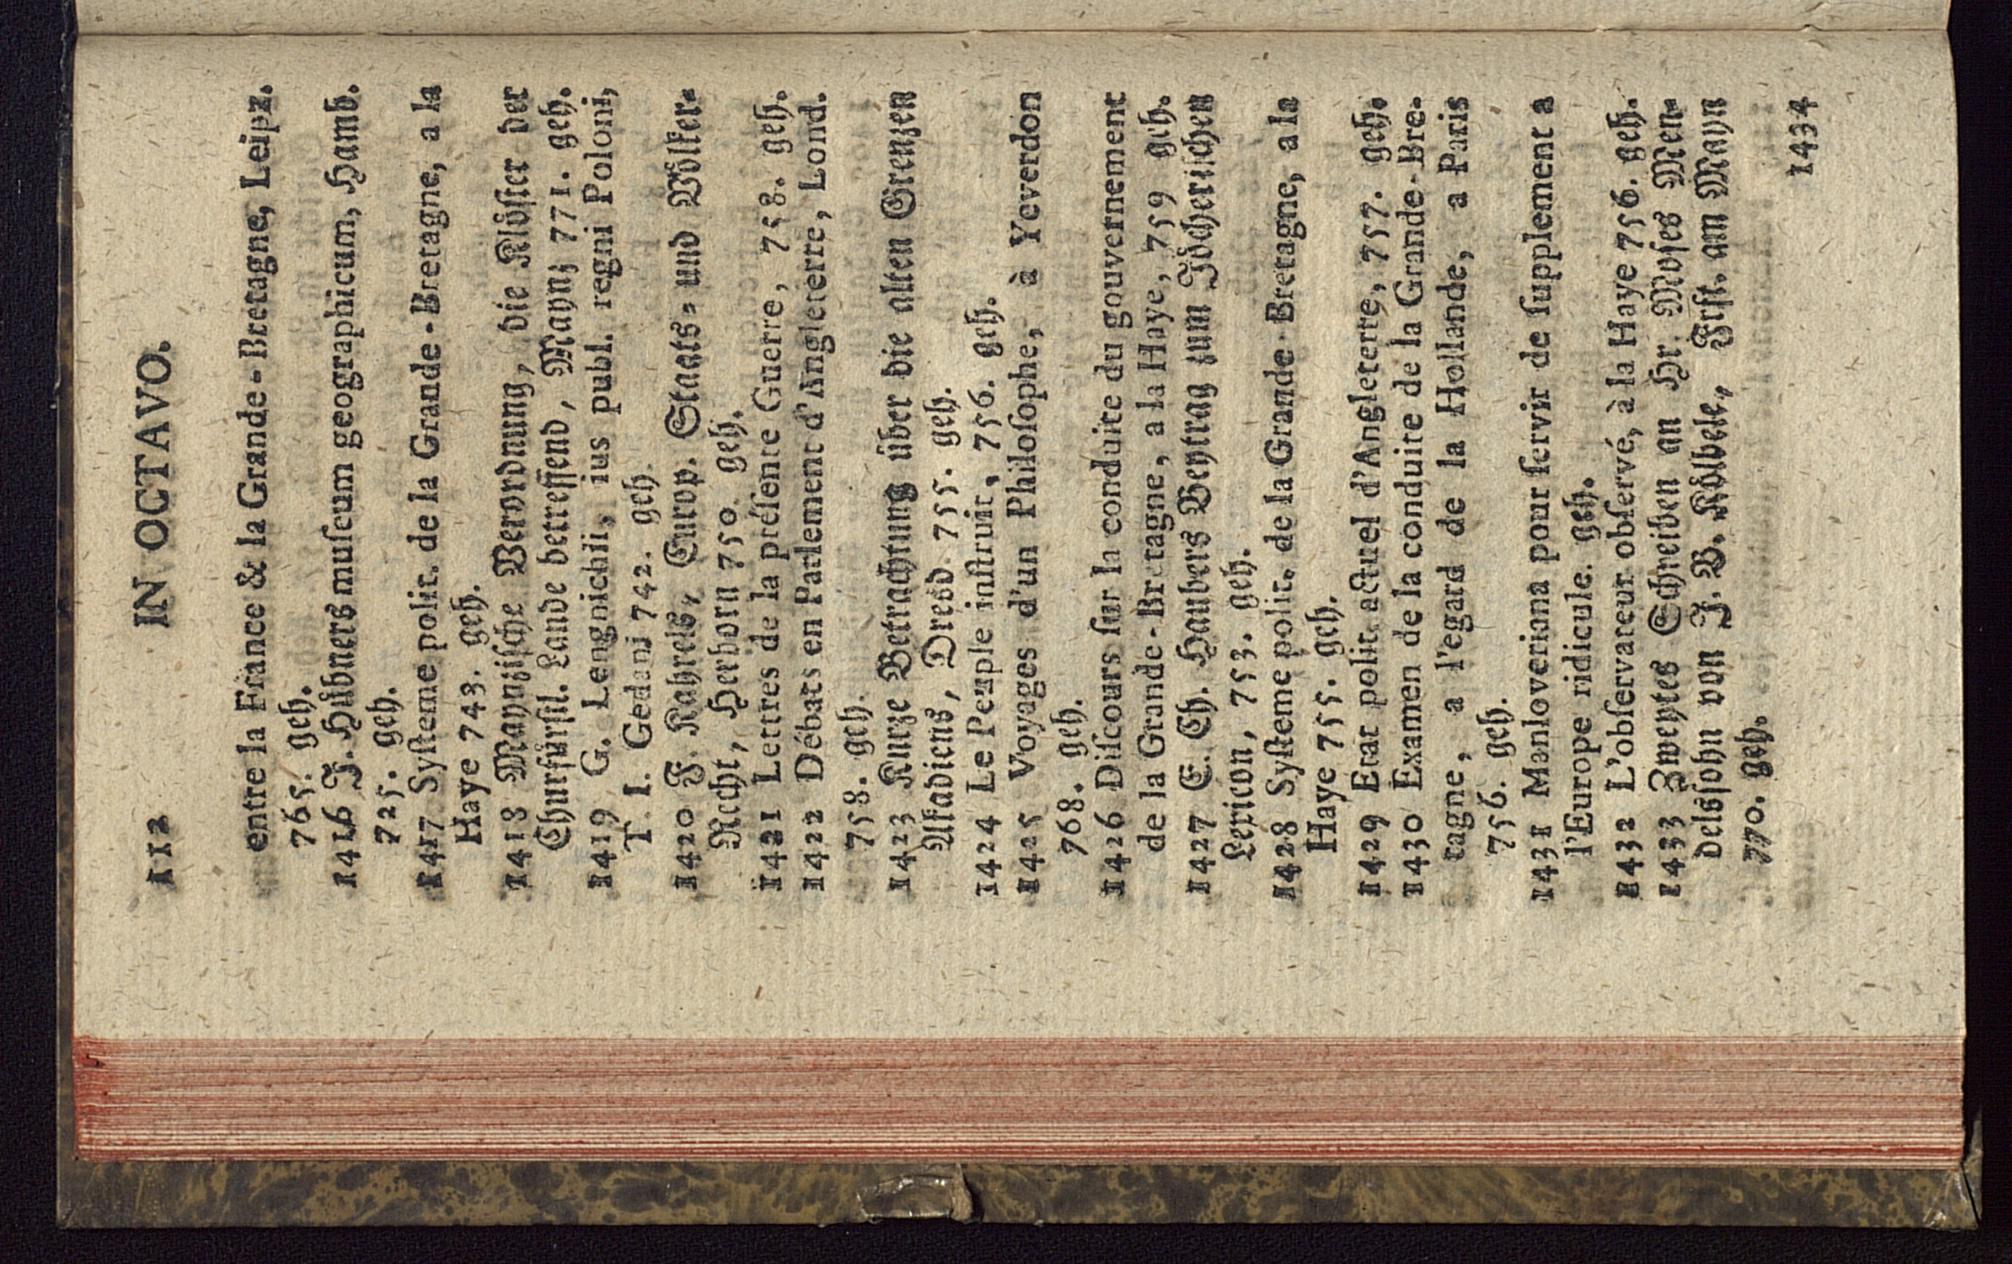 112 IN OCTAVO.
entre la France & la Grande-Bretagne, Leipz.
765. geh.
1416 J. Hübners muſeum geographicum, Hamb.
725. geh.
1417 Syſteme polit. de la Grande-Bretagne, a la
Haye 743. geh.
1418 Maynziſche Verordnung, die Klöſter der
Churfürſtl. Lande betreffend, Maynz 771. geh.
1419 G. Lengnichii, ius publ. regni Poloni,
T. I. Gedani 742. geh.
1420 F. Kahrels, Europ. Staats- und Völker-
Recht, Herborn 750. geh.
1421 Lettres de la préſente Guerre, 758. geh.
1422 Débats en Parlement d'Angleterre, Lond.
758. geh.
1423 Kurze Betrachtung über die alten Grenzen
Akadiens, Dresd. 755. geh.
1424 Le Peuple inſtruit, 756. geh.
1425 Voyages d'un Philoſophe, à Yeverdon
768. geh.
1426 Diſcours ſur la conduite du gouvernement
de la Grande-Bretagne, a la Haye, 759 geh.
1427 E. Ch. Haubers Beytrag zum Jöcheriſchen
Lexicon, 753. geh.
1428 Syſteme polit. de la Grande-Bretagne, a la
Haye 755. geh.
1429 Etat polit. actuel d'Angleterre, 757. geh.
1430 Examen de la conduite de la Grande-Bre-
tagne, a l'egard de la Hollande, a Paris
756. geh.
1431 Manloveriana pour ſervir de ſupplement a
l'Europe ridicule. geh.
1432 L'obſervateur obſervé, à la Haye 756. geh.
1433 Zweytes Schreiben an Hr. Moſes Men-
delsſohn von J. B. Kölbele, Frft. am Mayn
770. geh.
1434